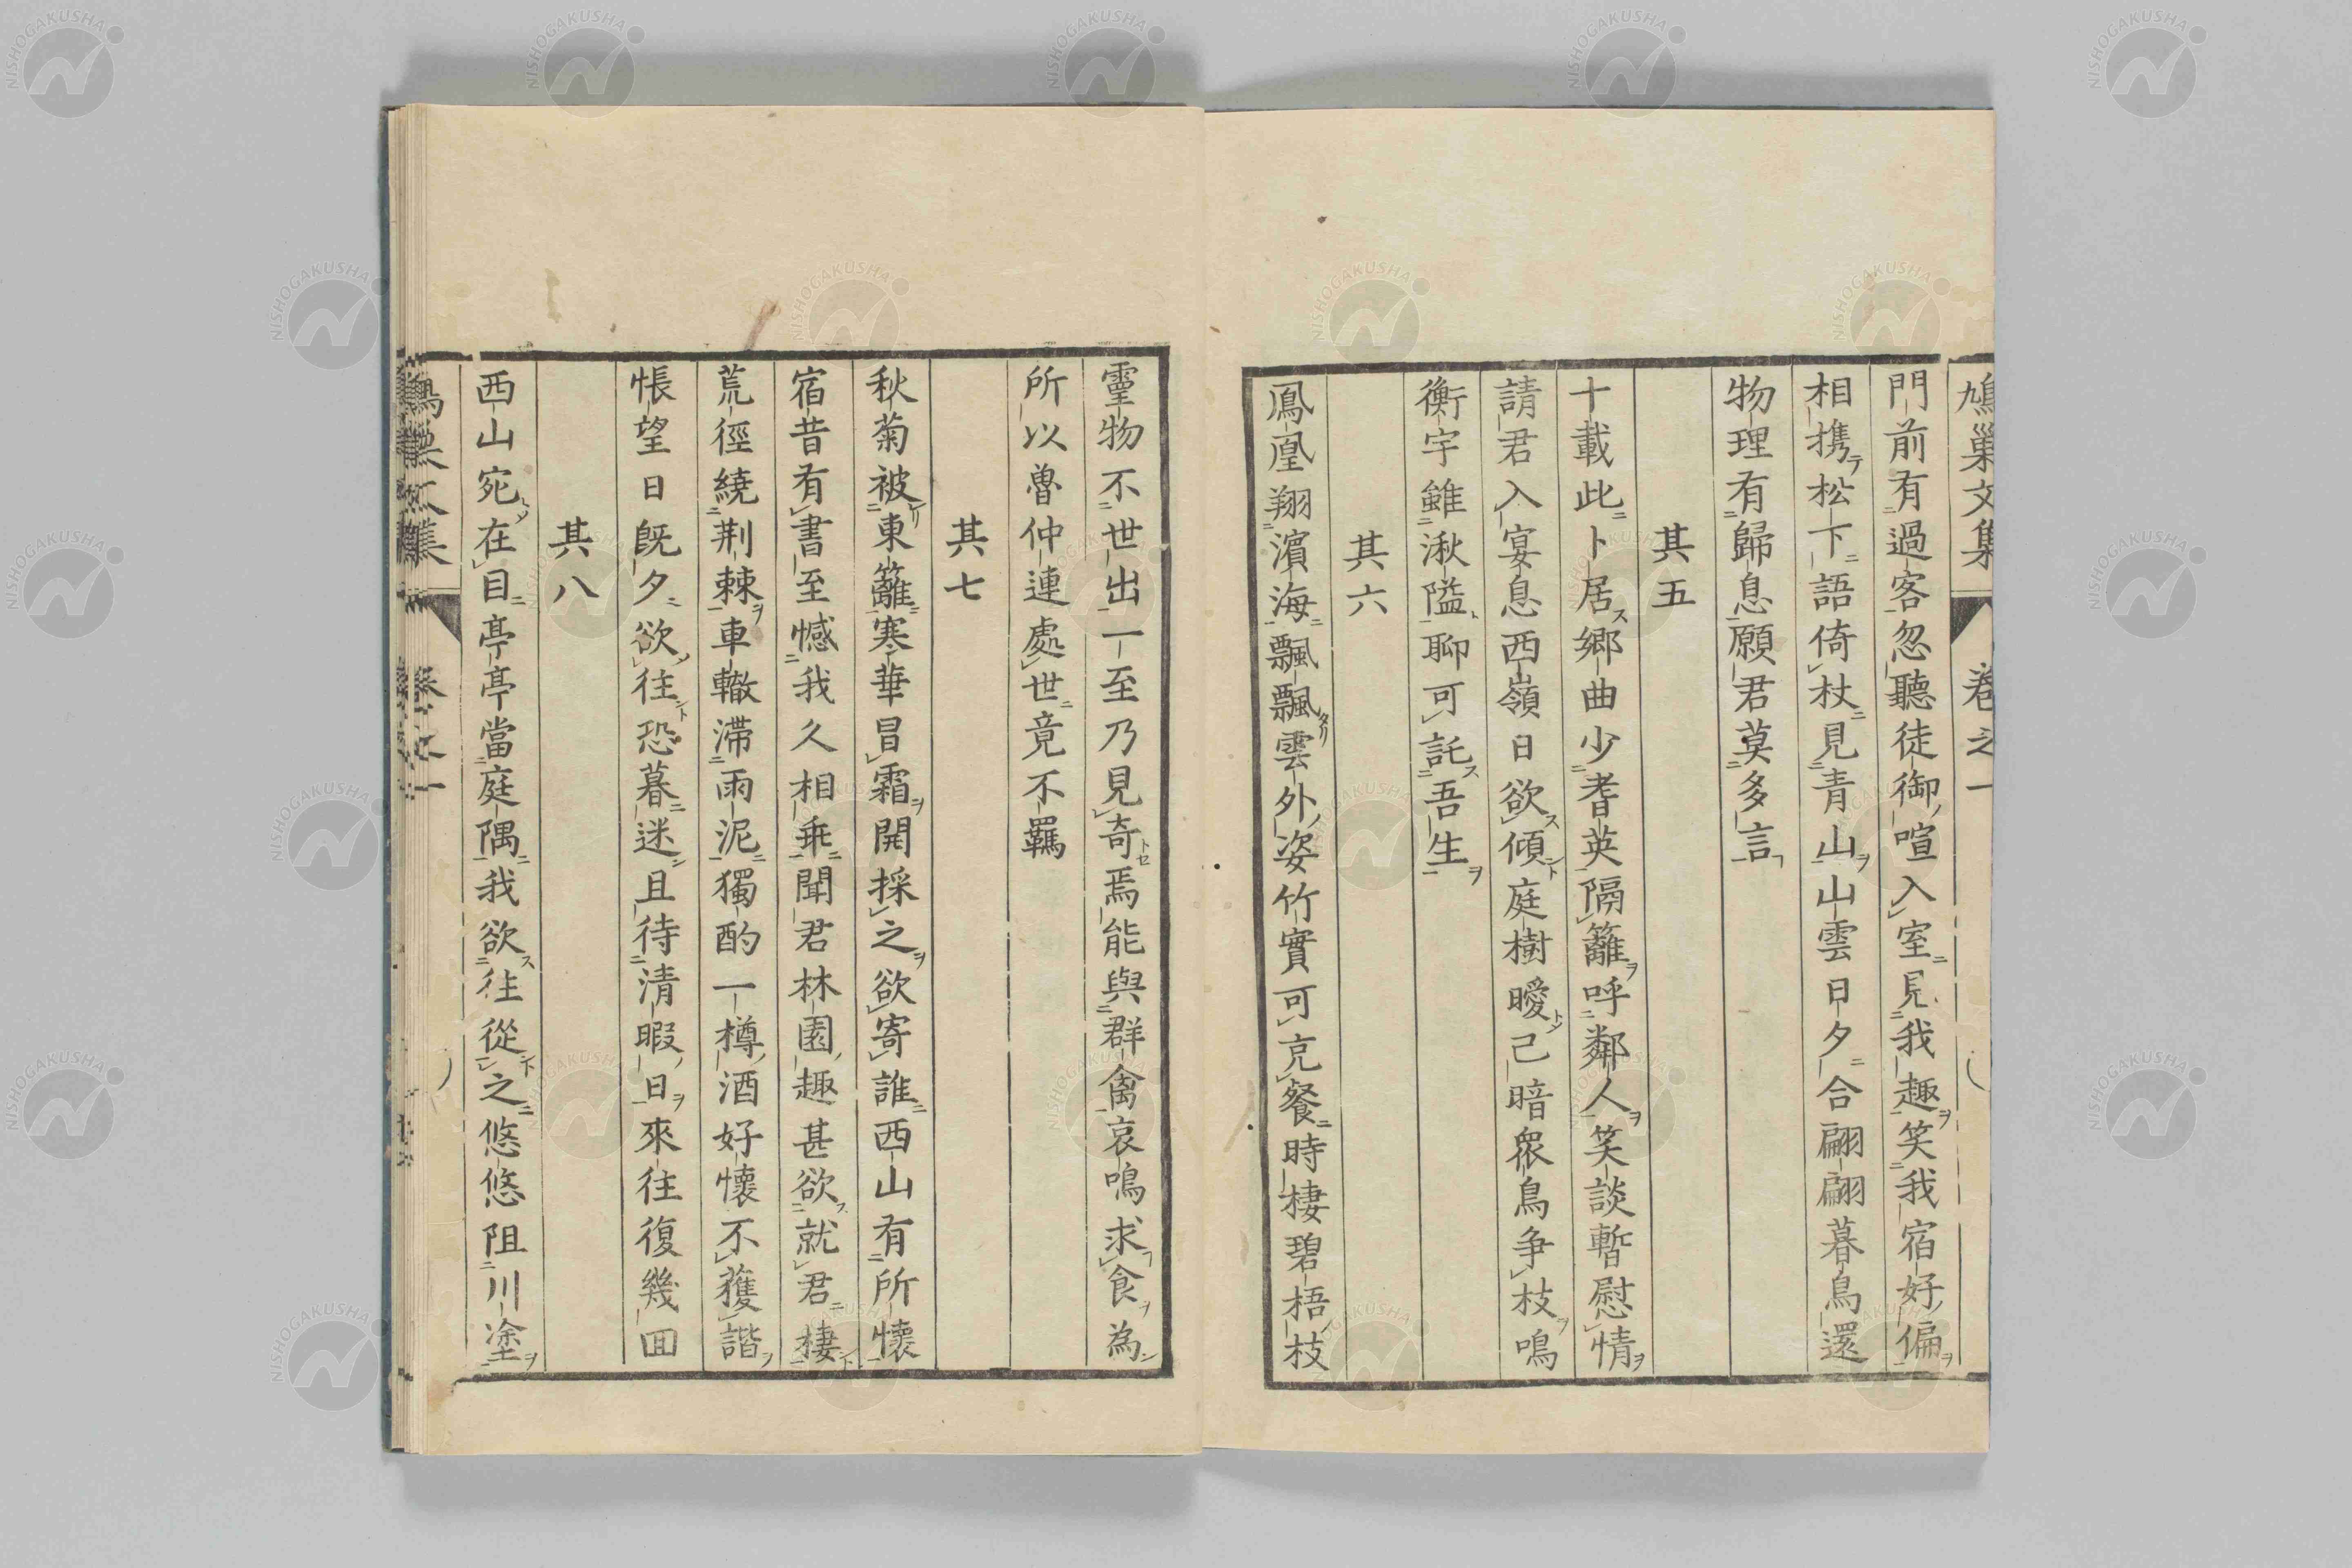 鳩巢文集 卷之一
門前有過客忽聽徒御喧入室見我趣笑我宿好偏
相携松下語倚杖見青山山雲日夕合翩翩暮鳥還
物理有歸息願君莫多言
其五
十載此卜居郷曲少耆英隔籬呼鄰人笑談暫慰情
請君入宴息西嶺日欲傾庭樹曖已暗衆鳥争枝鳴
衡宇雖湫隘聊可託吾生
其六
鳳凰翔濱海飄飄雲外姿竹實可充餐時棲碧梧枝
靈物不世出一至乃見奇焉能與群禽哀鳴求食為
所以魯仲連處世竟不羈
其七
秋菊被東籬寒華冒霜開採之欲寄誰西山有所懷
宿昔有書至憾我久相乖聞君林園趣甚欲就君棲
荒徑繞荆棘車轍滯雨泥獨酌一樽酒好懷不獲諧
悵望日既夕欲往恐暮迷且待清暇日來往復幾囬
其八
西山宛在目亭亭當庭隅我欲往從之悠悠阻川塗
NISHOGAKUSHA